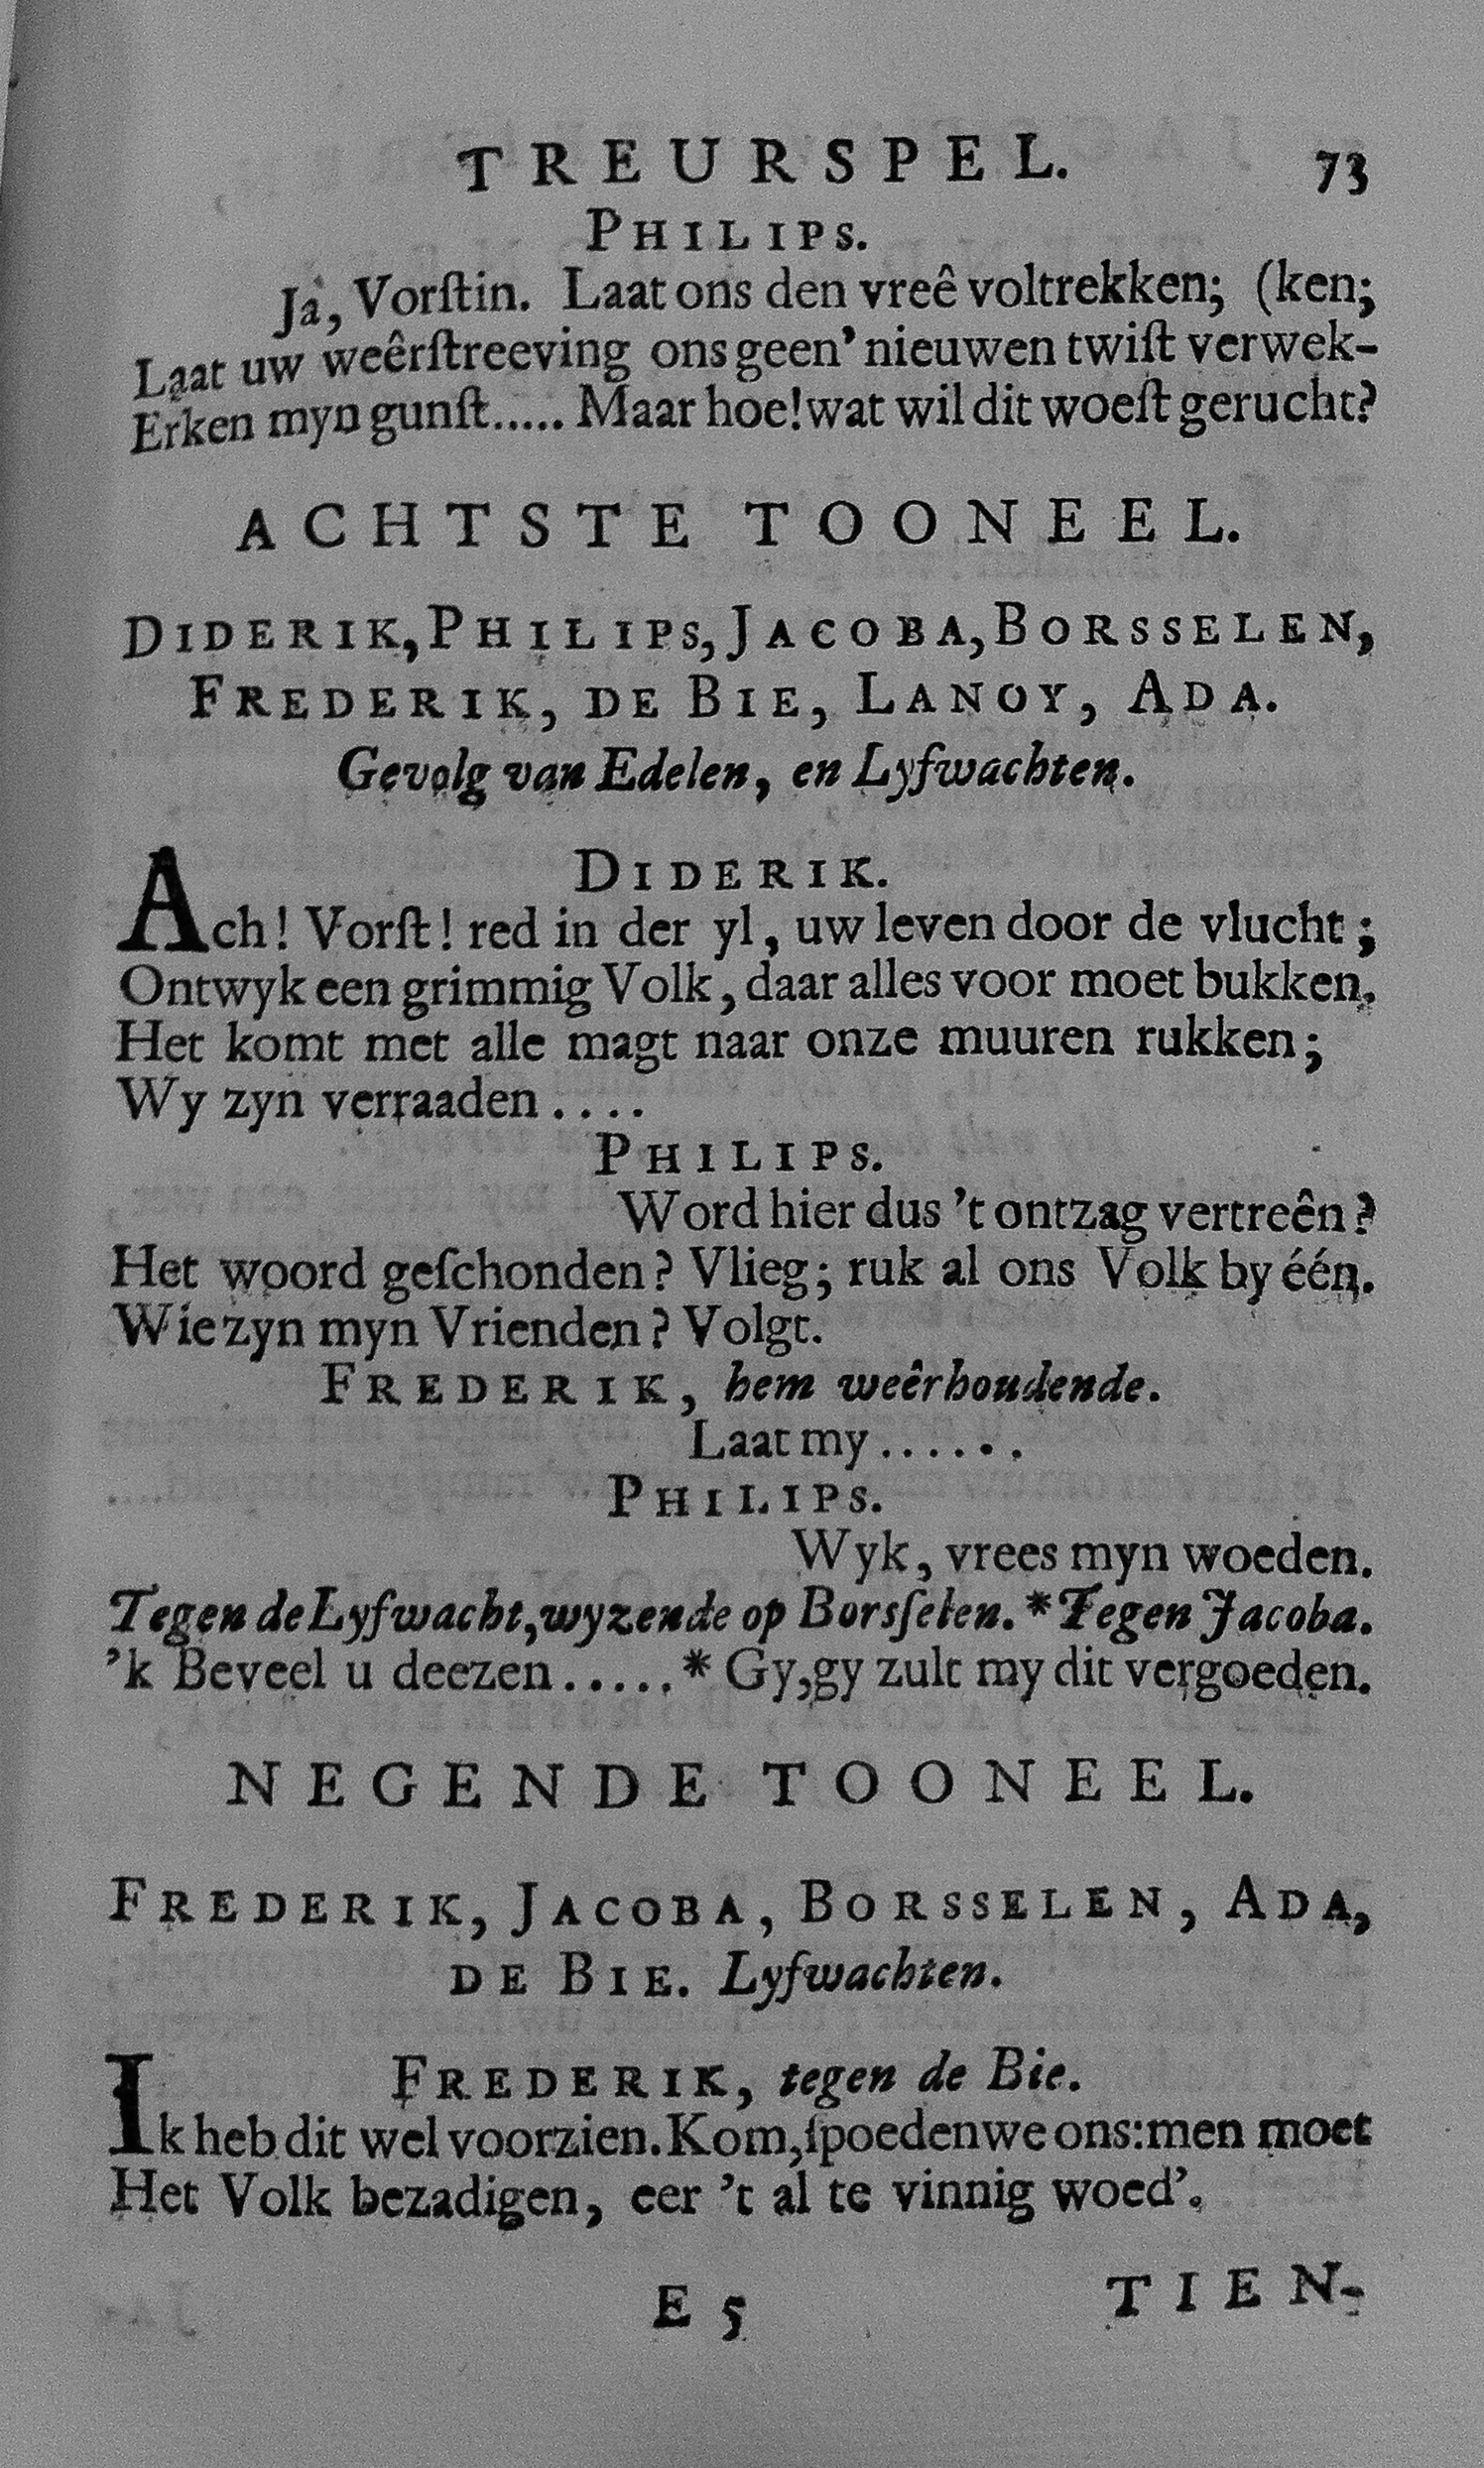 TREURSPEL. 73
PHILIPS.
Ja, Vorſtin. Laat ons den vreê voltrekken; (ken;
Laat uw weêrſtreeving ons geen' nieuwen twiſt verwek-
Erken myn gunſt..... Maar hoe! wat wil dit woeſt gerucht?
ACHTSTE TOONEEL.
DIDERIK, PHILIPS, JACOBA, BORSSELEN,
FREDERIK, DE BIE, LANOY, ADA.
Gevolg van Edelen, en Lyfwachten.
DIDERIK.
Ach! Vorſt! red in der yl, uw leven door de vlucht;
Ontwyk een grimmig Volk, daar alles voor moet bukken.
Het komt met alle magt naar onze muuren rukken;
Wy zyn verraaden....
PHILIPS.
Word hier dus 't ontzag vertreên?
Het woord geſchonden? Vlieg; ruk al ons Volk by één.
Wie zyn myn Vrienden? Volgt.
FREDERIK, hem weêrhoudende.
Laat my......
PHILIPS.
Wyk, vrees myn woeden.
Tegen de Lyfwacht, wyzende op Borsſelen. * Tegen Jacoba.
'k Beveel u deezen..... * Gy, gy zult my dit vergoeden.
NEGENDE TOONEEL.
FREDERIK, JACOBA, BORSSELEN, ADA,
DE BIE. Lyfwachten.
FREDERIK, tegen de Bie.
Ik heb dit wel voorzien. Kom, ſpoeden we ons: men moet
Het Volk bezadigen, eer 't al te vinnig woed'.
E 5 TIEN-